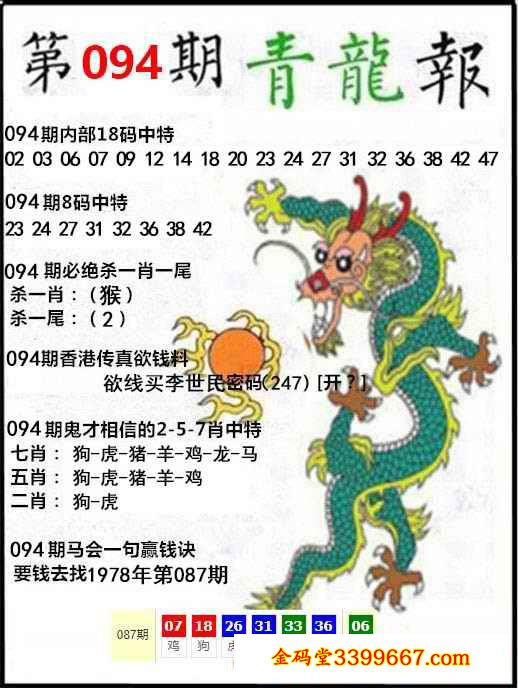 第094期青龍報
094期内部18码中特
02 03 06 07 09 12 14 18 20 23 24 27 31 32 36 38 42 47
094期8码中特
23 24 27 31 32 36 38 42
094 期必绝杀一肖一尾
杀一肖：（猴）
杀一尾：（2）
094期香港传真欲钱料
欲线买李世民密码(247) [开？]
094期鬼才相信的2-5-7肖中特
七肖： 狗-虎-猪-羊-鸡-龙-马
五肖： 狗-虎-猪-羊-鸡
二肖： 狗-虎
094期马会一句赢钱诀
要钱去找1978年第087期
087期 07 18 26 31 33 36 06
鸡 狗
金码堂3399667.com